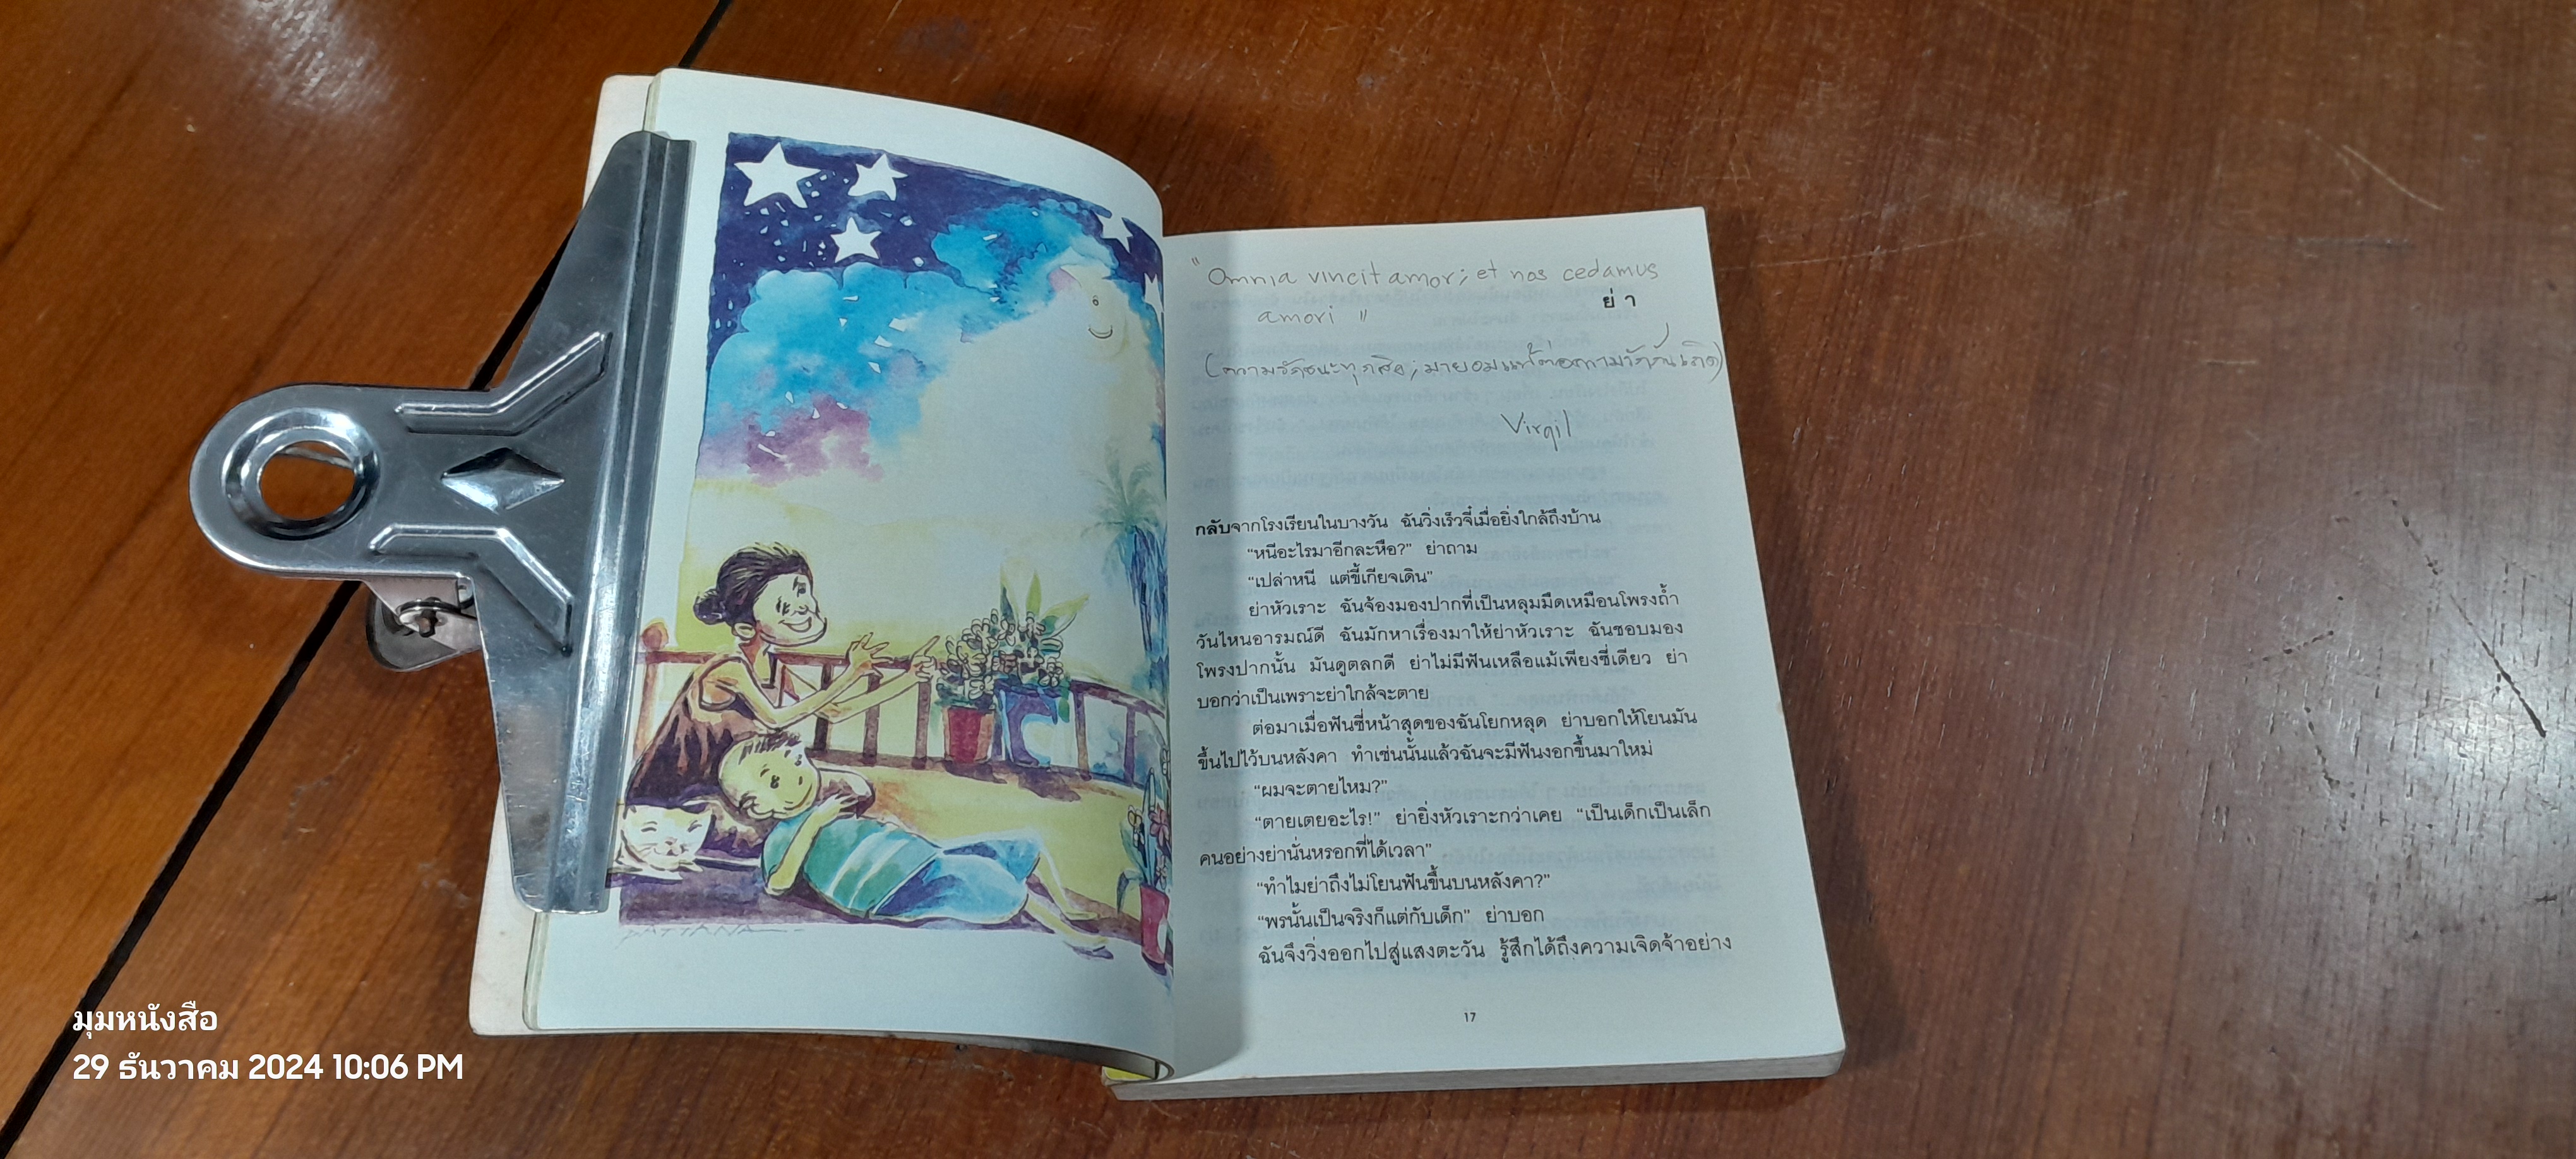 PATTANA
"Omnia vincit amor; et nos cedamus
ย่า
amori"
(ความรักชนะทุกสิ่ง; มายอมแพ้ต่อความรักกันเถิด)
Virgil
กลับจากโรงเรียนในบางวัน ฉันวิ่งเร็วจี๋เมื่อยิ่งใกล้ถึงบ้าน
“หนีอะไรมาอีกละหือ?” ย่าถาม
“เปล่าหนี แต่ขี้เกียจเดิน”
ย่าหัวเราะ ฉันจ้องมองปากที่เป็นหลุมมืดเหมือนโพรงถ้ำ
วันไหนอารมณ์ดี ฉันมักหาเรื่องมาให้ย่าหัวเราะ ฉันชอบมอง
โพรงปากนั้น มันดูตลกดี ย่าไม่มีฟันเหลือแม้เพียงซี่เดียว ย่า
บอกว่าเป็นเพราะย่าใกล้จะตาย
ต่อมาเมื่อฟันซี่หน้าสุดของฉันโยกหลุด ย่าบอกให้โยนมัน
ขึ้นไปไว้บนหลังคา ทำเช่นนั้นแล้วฉันจะมีฟันงอกขึ้นมาใหม่
“ผมจะตายไหม?”
“ตายเตยอะไร!” ย่ายิ่งหัวเราะกว่าเคย “เป็นเด็กเป็นเล็ก
คนอย่างย่านั่นหรอกที่ได้เวลา”
“ทำไมย่าถึงไม่โยนฟันขึ้นบนหลังคา?”
“พรนั้นเป็นจริงก็แต่กับเด็ก” ย่าบอก
ฉันจึงวิ่งออกไปสู่แสงตะวัน รู้สึกได้ถึงความเจิดจ้าอย่าง
17
มุมหนังสือ
29 ธันวาคม 2024 10:06 PM